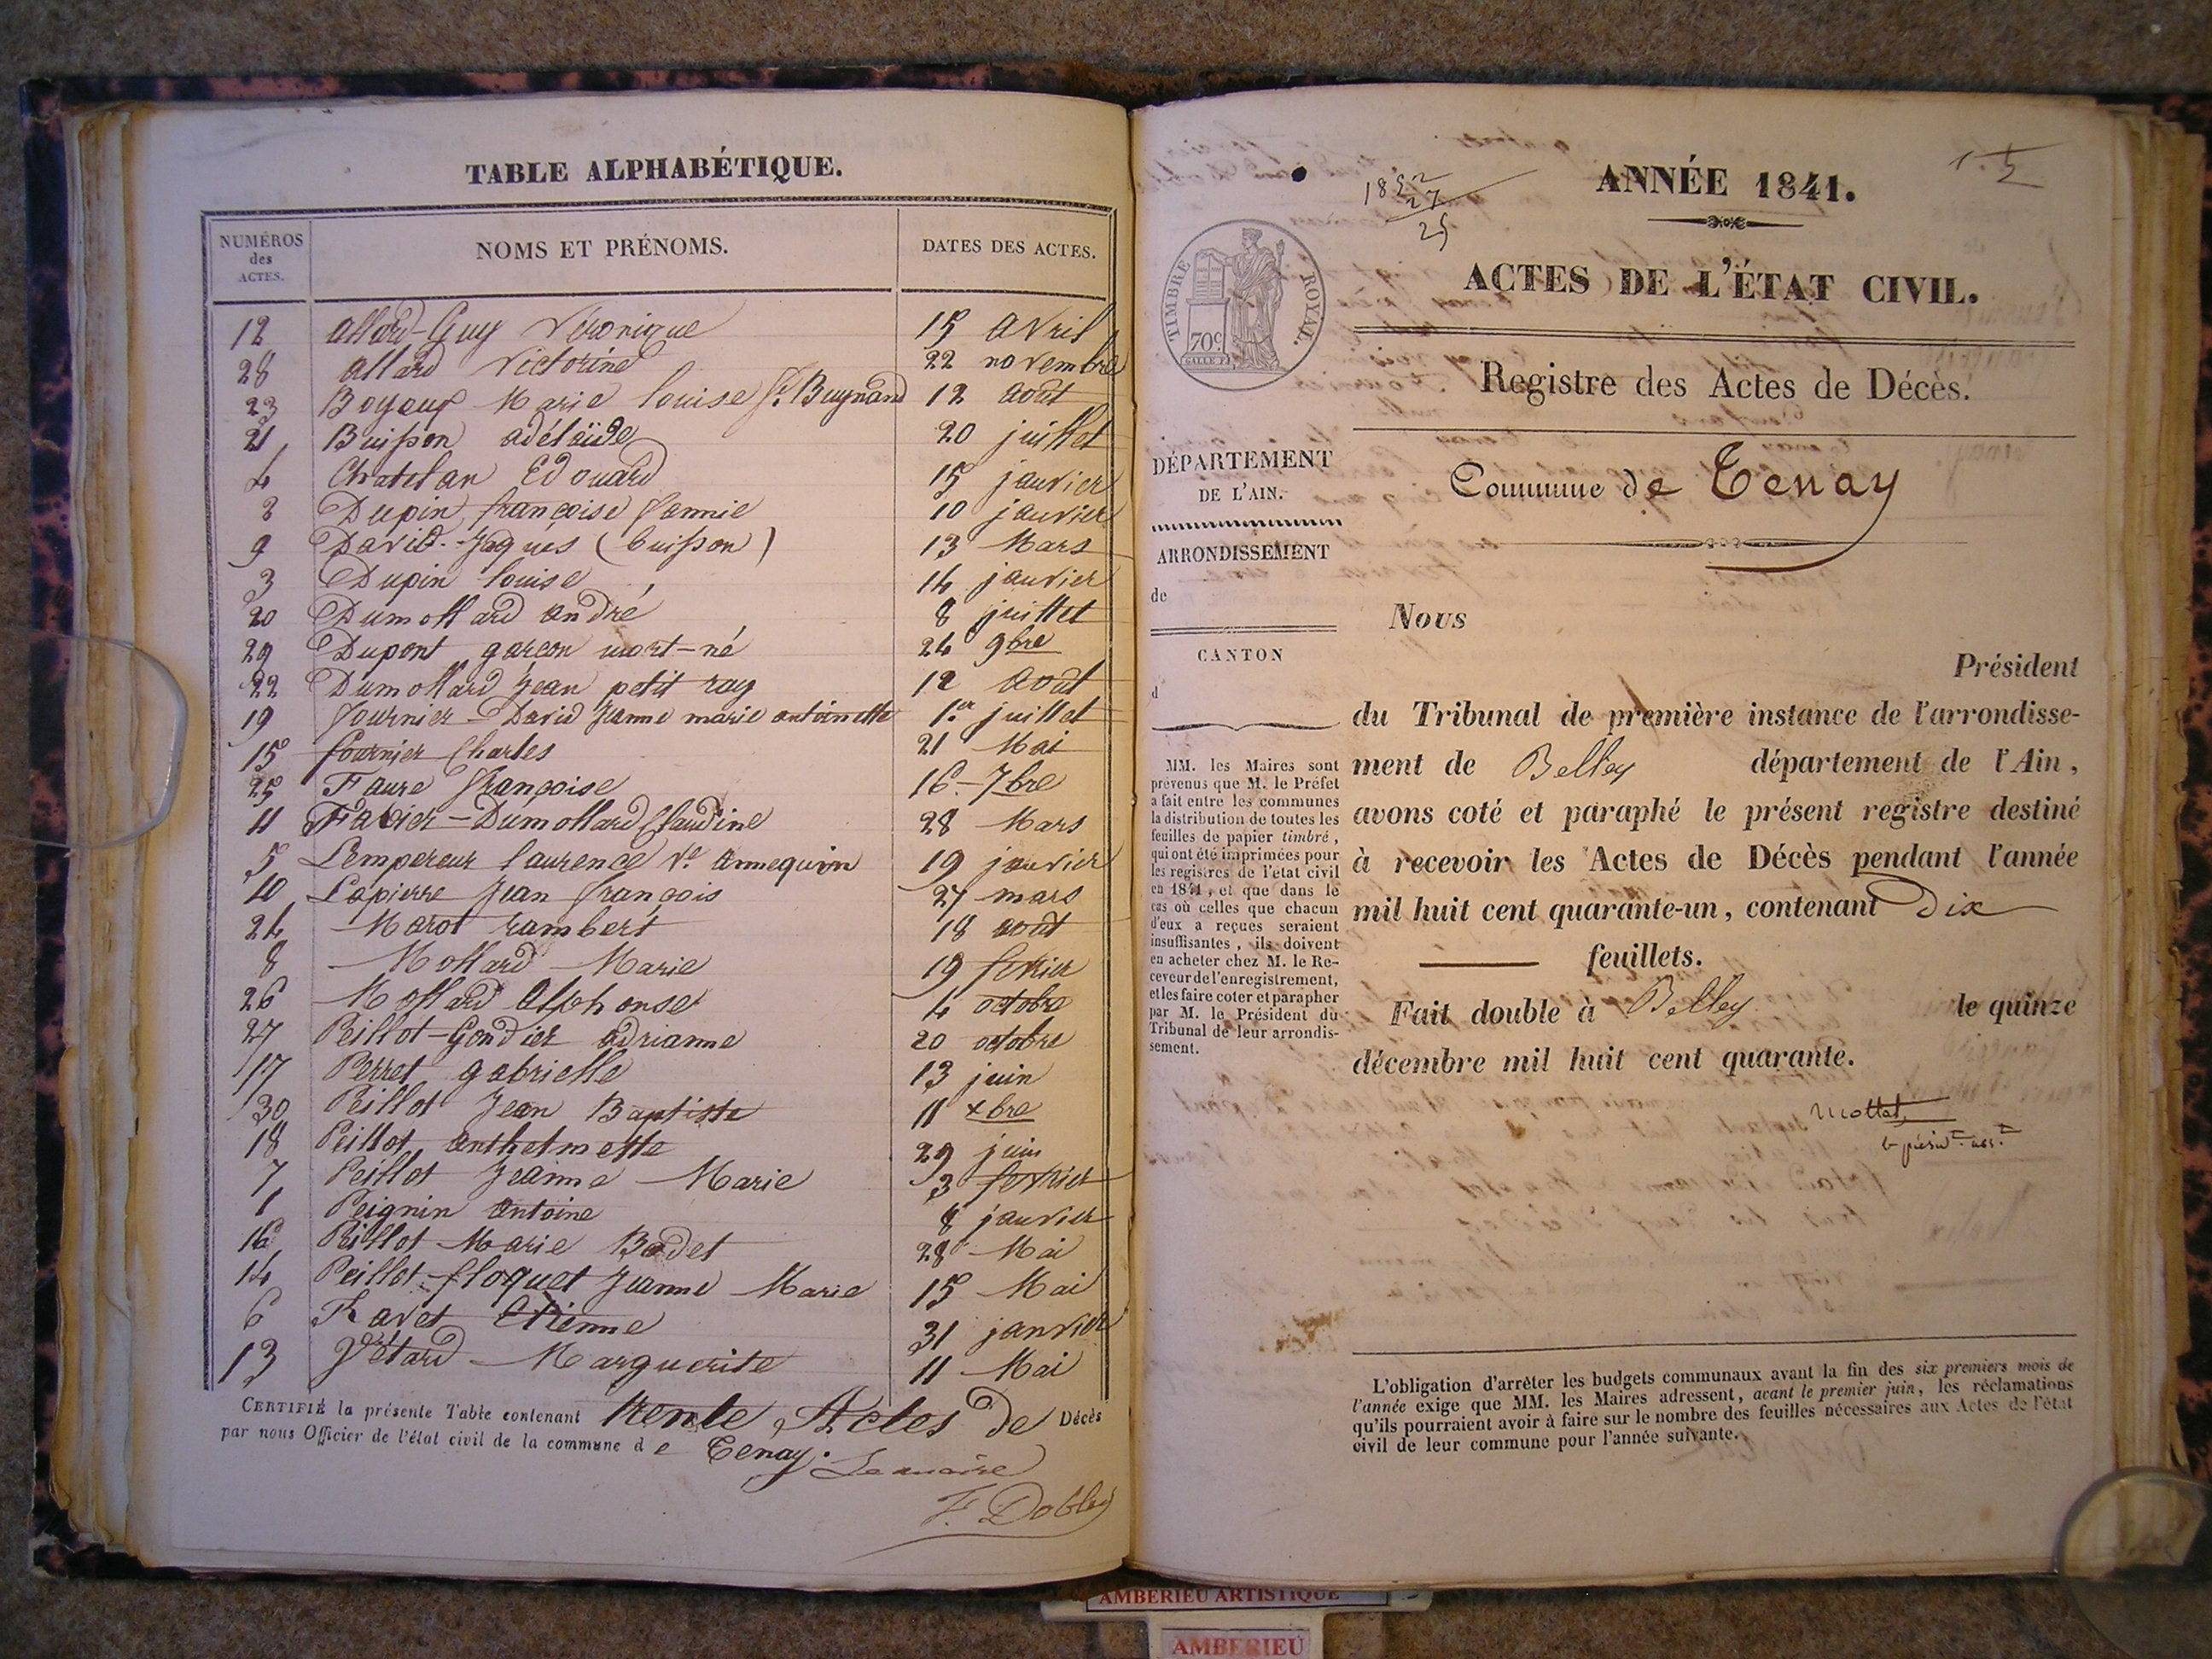 TABLE ALPHABÉTIQUE.
NUMÉROS des ACTES. NOMS ET PRÉNOMS. DATES DES ACTES.
12 allard-Guy Véronique 15 avril
28 allard victorine 22 novembre
23 Boyeux Marie louise fe Buynand 12 août
21 Buisson adélaïde 20 juillet
4 Chatelan Edouard 15 janvier
2 Dupin françoise fannie 10 janvier
9 David-Jaques (buisson) 13 Mars
3 Dupin louise 14 janvier
20 Dumollard andré 8 juillet
29 Dupont garcon mort-né 24 9bre
22 Dumollard Jean petit ray 12 août
19 fournier-David Jeanne marie antoinette 1.er juillet
15 fournier Charles 21 Mai
25 Faure françoise 16-7bre
11 Favier-Dumollard Claudine 28 Mars
5 Lempereur laurence Ve annequin 19 janvier
10 Lapierre Jean françois 27 mars
24 Marot rambert 18 août
8 Mollard Marie 19 fevrier
26 Mollard Alphonse 4 octobre
27 Peillot-Gondier adrianne 20 octobre
17 Perret gabrielle 13 juin
30 Peillot Jean Baptiste 11 xbre
18 Peillot anthelmette 29 juin
7 Peillot Jeanne Marie 3 fevrier
1 Peignin antoine 8 janvier
16 Peillot Marie Bodet 28 Mai
14 Peillot-floquet Jeanne Marie 15 Mai
6 Ravet Etienne 31 janvier
13 Vétard Marguerite 11 Mai
CERTIFIÉ la présente Table contenant trente Actes de Décès
par nous Officier de l'état civil de la commune de Tenay.
Le maire
F. Dobley
ANNÉE 1841.
27
25
ACTES DE L'ÉTAT CIVIL.
TIMBRE ROYAL.
70c
Registre des Actes de Décès.
DÉPARTEMENT
DE L'AIN.
ARRONDISSEMENT
de
CANTON
d
MM. les Maires sont
prévenus que M. le Préfet
a fait entre les communes
la distribution de toutes les
feuilles de papier timbré,
qui ont été imprimées pour
les registres de l'état civil
en 1841, et que dans le
cas où celles que chacun
d'eux a reçues seraient
insuffisantes, ils doivent
en acheter chez M. le Re-
ceveur de l'enregistrement,
et les faire coter et parapher
par M. le Président du
Tribunal de leur arrondis-
sement.
Commune de Tenay
Nous
Président
du Tribunal de première instance de l'arrondisse-
ment de Belley département de l'Ain,
avons coté et paraphé le présent registre destiné
à recevoir les Actes de Décès pendant l'année
mil huit cent quarante-un, contenant Dix
feuillets.
Fait double à Belley le quinze
décembre mil huit cent quarante.
L'obligation d'arrêter les budgets communaux avant la fin des six premiers mois de
l'année exige que MM. les Maires adressent, avant le premier juin, les réclamations
qu'ils pourraient avoir à faire sur le nombre des feuilles nécessaires aux Actes de l'état
civil de leur commune pour l'année suivante.
AMBERIEU ARTISTIQUE
AMBERIEU